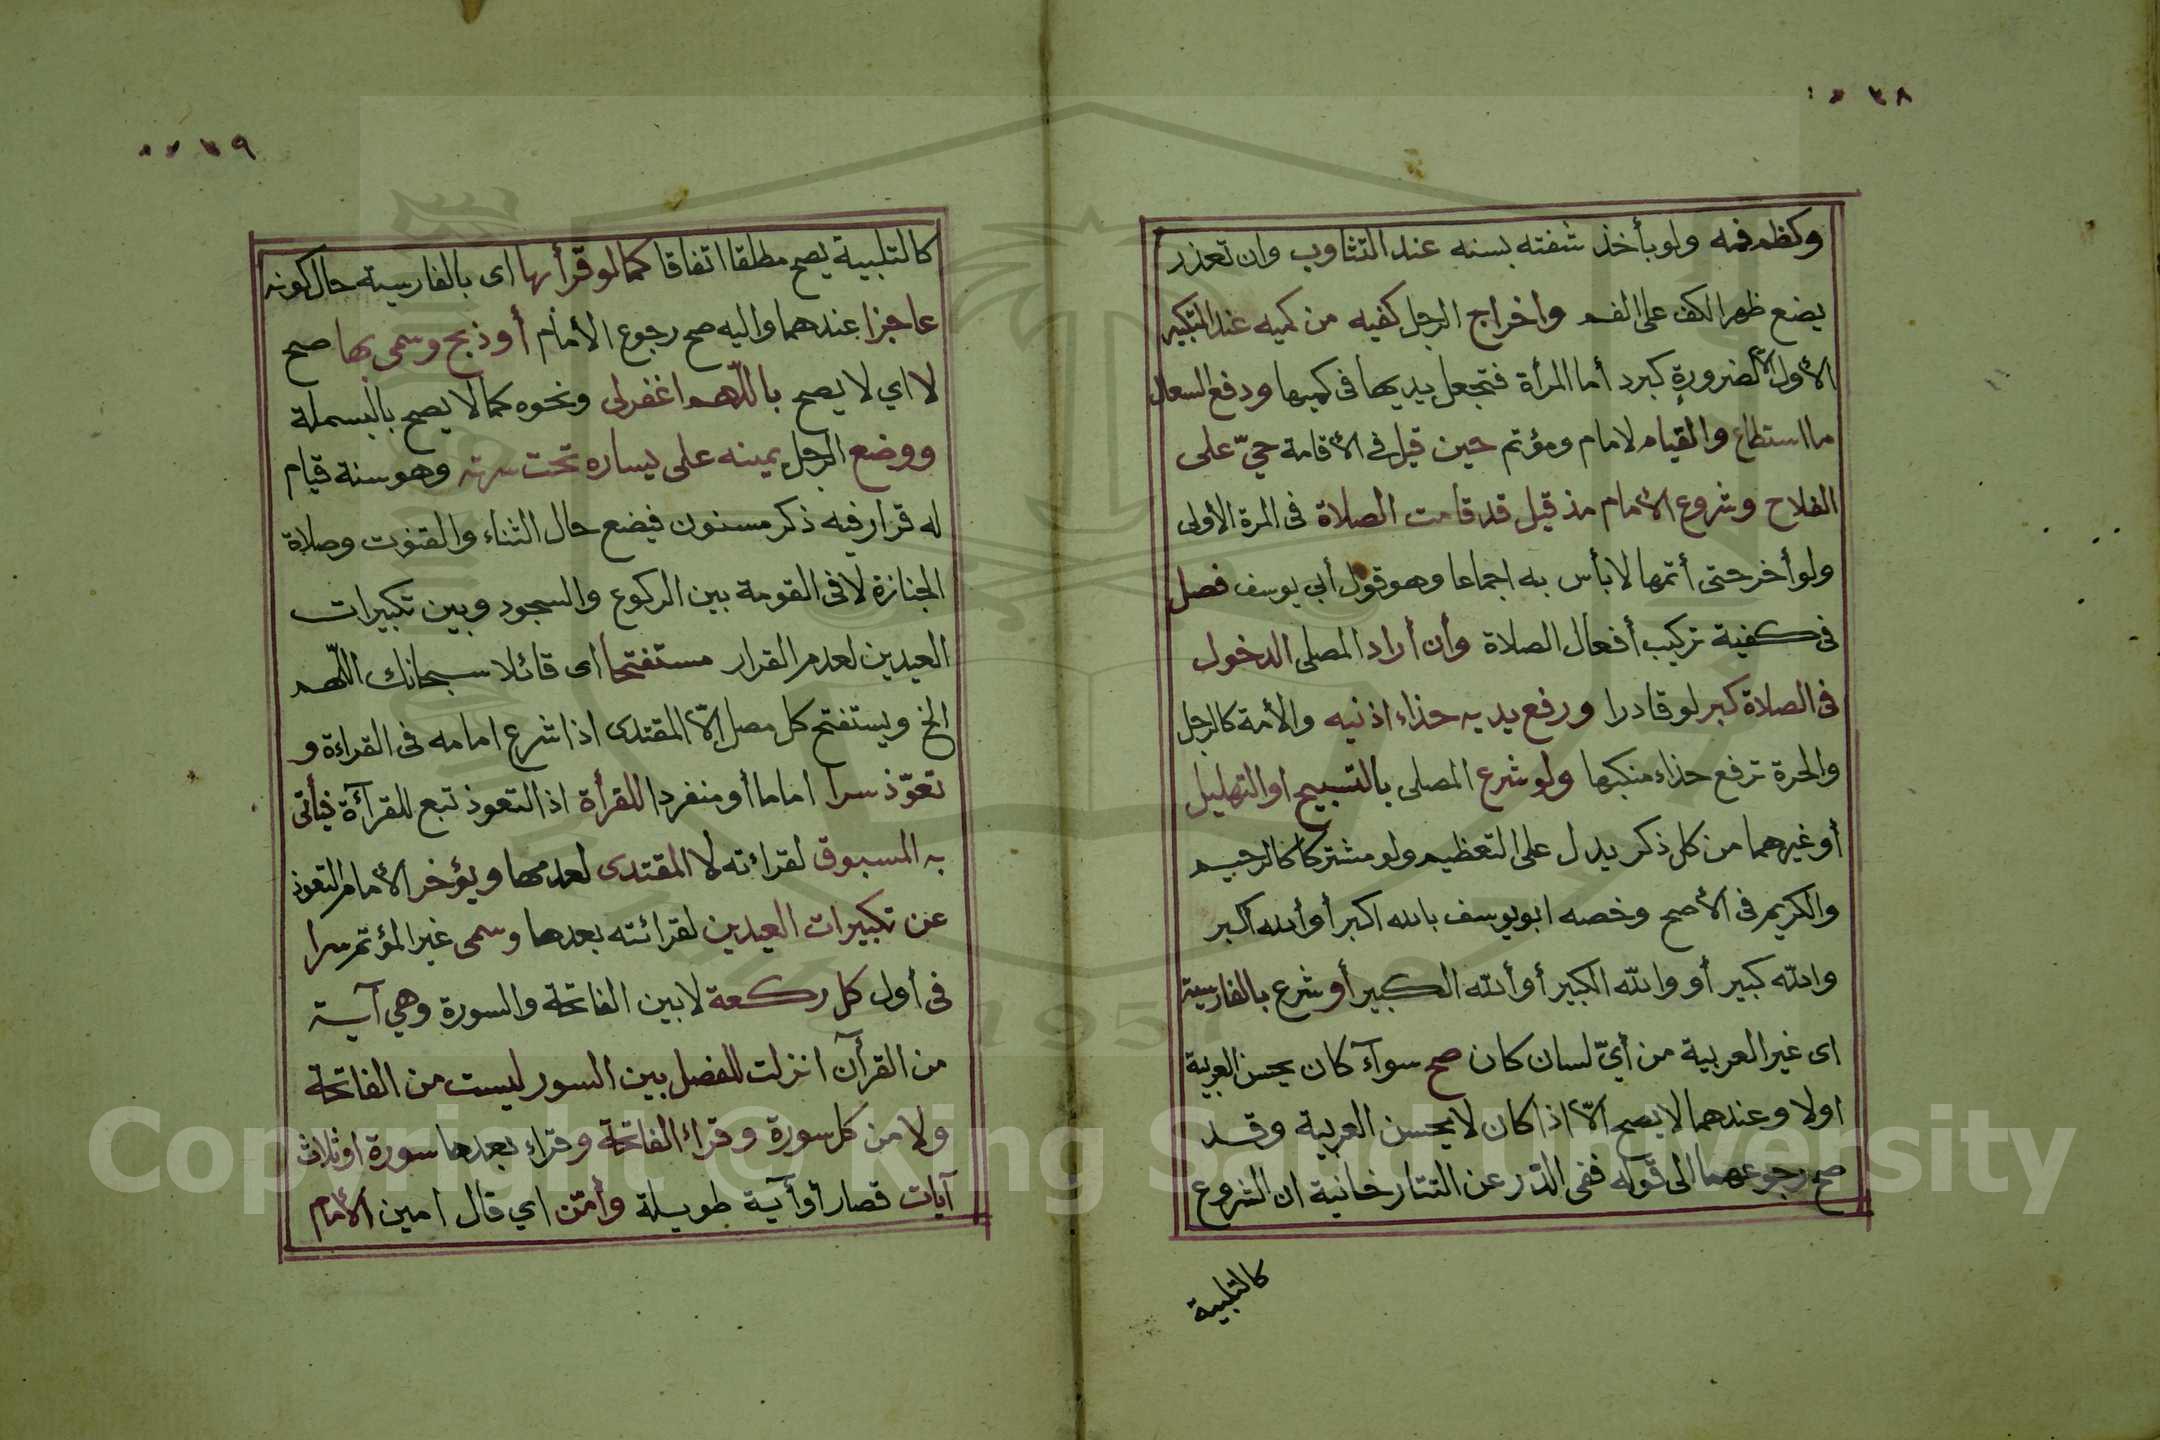 ٣٨
وكظم فمه ولو بأخذ شفته بسنه عند التثاوب وان تعذر
يضع ظهر الكف على الفم واخراج الرجل كفيه من كميه عند التكبير
الأول الا لضرورة كبرد أما المرأة فتجعل يديها في كميها ودفع السعال
ما استطاع والقيام لامام ومؤتم حين قيل في الأقامة حيّ على
الفلاح وشروع الأمام مذ قيل قد قامت الصلاة في المرة الأولى
ولو أخر حتى أتمها لا بأس به اجماعا وهو قول أبي يوسف فصل
في كفية تركيب أفعال الصلاة وأن أراد المصلى الدخول
في الصلاة كبر لو قادرا ورفع يديه حذاء اذنيه والأمة كالرجل
والحرة ترفع حذاء منكبها ولو شرع المصلى بالتسبيح او التهليل
أو غيرهما من كل ذكر يدل على التعظيم ولو مشتركا كالرحيم
والكريم في الأصح وخصه ابو يوسف بالله اكبر أو ألله اكبر
والله كبير أو والله الكبير أو ألله الكبير أو شرع بالفارسية
اى غير العربية من أيّ لسان كان صح سوآء كان يحسن العربية
اولا وعندهما لا يصح الّا اذا كان لا يحسن العربية وقد
صح رجوعهما الى قوله ففى الدّر عن التتارخانية ان الشروع
كالتلبية
٣٩
كالتلبية يصح مطلقا اتفاقا كما لو قرأ بها اى بالفارسية حال كونه
عاجزا عندهما واليه صح رجوع الأمام أو ذبح وسمى بها صح
لا اي لا يصح باللّهم اغفر لى ونحوه كما لا يصح بالبسملة
ووضع الرجل يمينه على يساره تحت سرته وهو سنة قيام
له قرار فيه ذكر مسنون فيضع حال الثناء والقنوت وصلاة
الجنازة لا في القومة بين الركوع والسجود وبين تكبيرات
العيدين لعدم القرار مستفتحا اى قائلا سبحانك اللّهم
الخ ويستفتح كل مصل الّا المقتدى اذا شرع امامه في القراءة و
تعوّذ سرا اماما أو منفردا للقرأة اذ التعوذ تبع للقرآءة فيأتى
به المسبوق لقراءته لا المقتدى لعدمها ويؤخر الأمام التعوذ
عن تكبيرات العيدين لقرائته بعدها وسمى غير المؤتم سرا
في أول كل ركعة لا بين الفاتحة والسورة وهي آية
من القرأن انزلت للفصل بين السور ليست من الفاتحة
ولا من كل سورة وقراء الفاتحة وقراء بعدها سورة او ثلاث
آيات قصار أو أية طويلة وأمّن اي قال امين الأمام
1957
Copyright © King Saud University